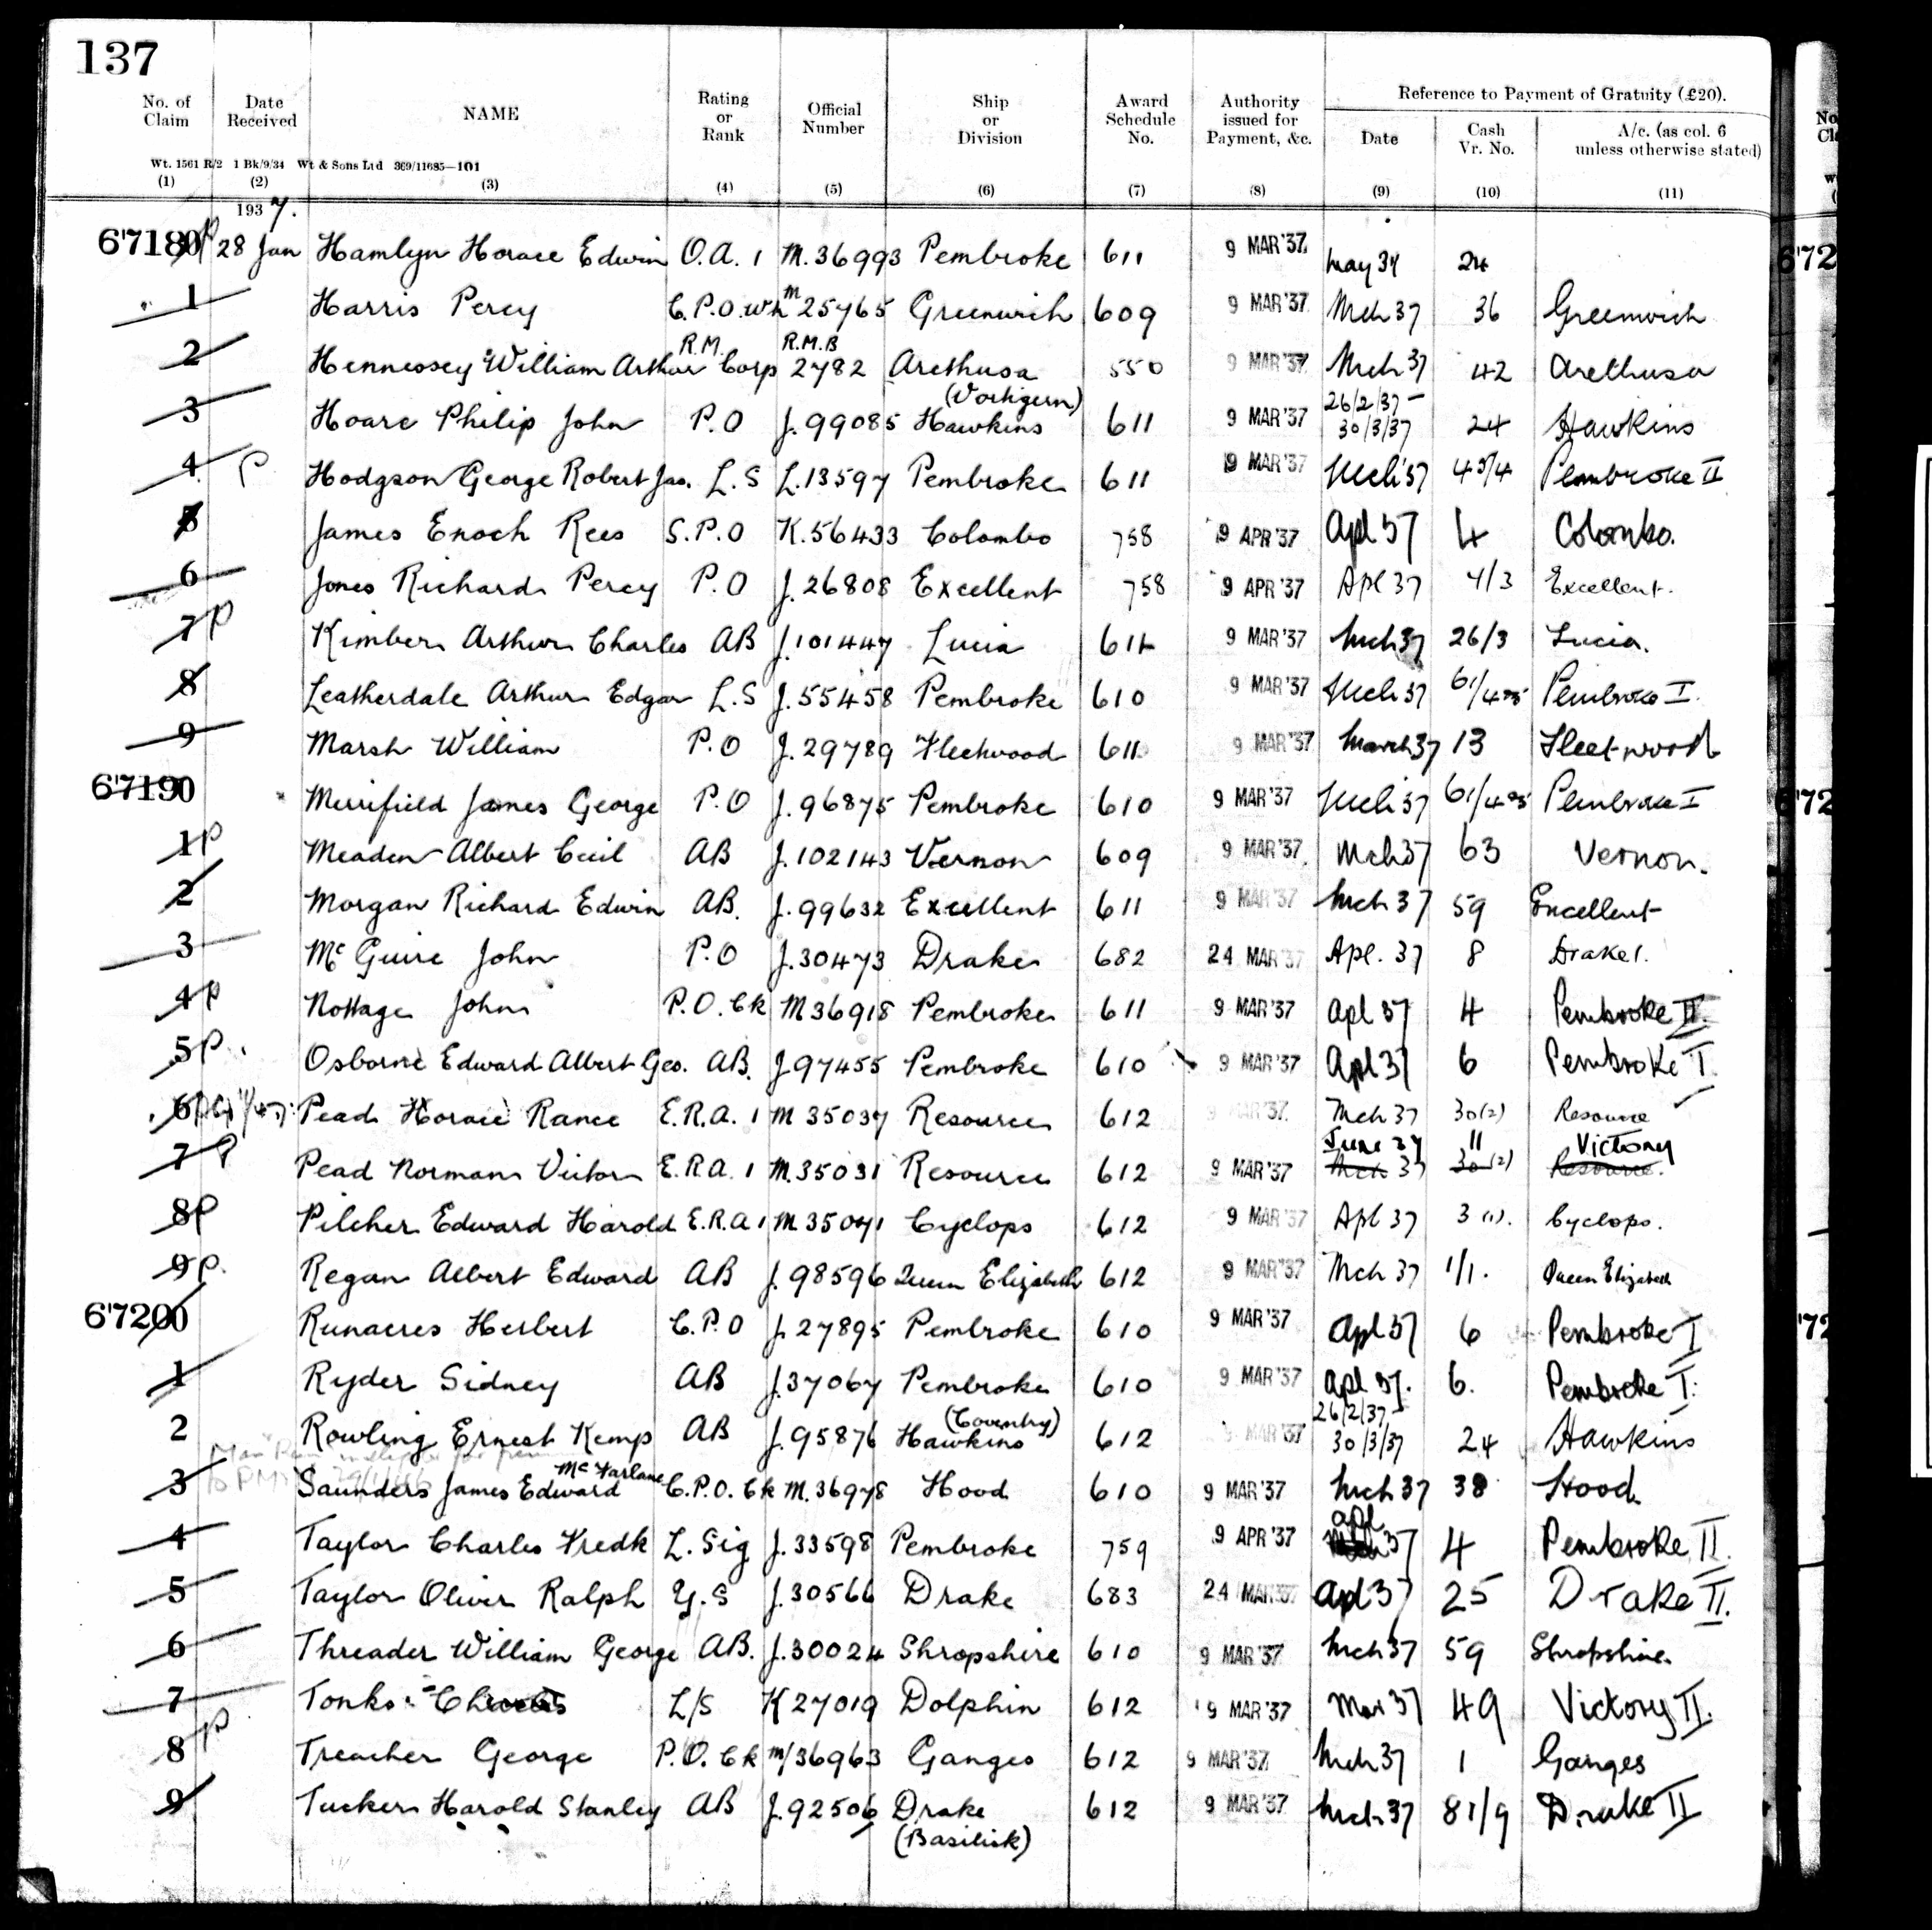 137
No. of Claim | Date Received | NAME | Rating or Rank | Official Number | Ship or Division | Award Schedule No. | Authority issued for Payment, &c. | Reference to Payment of Gratuity (£20). | Date | Cash Vr. No. | A/c. (as col. 6 unless otherwise stated)
Wt. 1561 R/2 1 Bk/9/34 Wt & Sons Ltd 369/11685—101
(1) (2) (3) (4) (5) (6) (7) (8) (9) (10) (11)
1937.
67180 P 28 Jan Hamlyn Horace Edwin O.A. 1 M.36993 Pembroke 611 9 MAR '37 May 37 24
1 Harris Percy C.P.O. Wtr M 25765 Greenwich 609 9 MAR '37 Mch 37 36 Greenwich
R.M. R.M.B
2 Hennessey William Arthur Corp 2782 Arethusa 550 9 MAR '37 Mch 37 42 Arethusa
(Vortigern) 26/2/37 –
3 Hoare Philip John P.O J.99085 Hawkins 611 9 MAR '37 30/3/37 24 Hawkins
4 P Hodgson George Robert Jas. L.S L.13597 Pembroke 611 9 MAR '37 Mch 37 45/4 Pembroke II
5 James Enoch Rees S.P.O K.56433 Colombo 758 9 APR '37 Apl 37 4 Colombo.
6 Jones Richard Percy P.O J.26808 Excellent 758 9 APR '37 Apl 37 4/3 Excellent.
7 P Kimber Arthur Charles AB J.101447 Lucia 611 9 MAR '37 Mch 37 26/3 Lucia.
8 Leatherdale Arthur Edgar L.S J.55458 Pembroke 610 9 MAR '37 Mch 37 61/ Pembroke I.
9 Marsh William P.O J.29789 Fleetwood 611 9 MAR '37 March 37 13 Fleetwood
67190 Merrifield James George P.O J.96875 Pembroke 610 9 MAR '37 Mch 37 61/ Pembroke I
1 P Meaden Albert Cecil AB J.102143 Vernon 609 9 MAR '37 Mch 37 63 Vernon.
2 Morgan Richard Edwin AB. J.99632 Excellent 611 9 MAR '37 Mch 37 59 Excellent
3 McGuire John P.O J.30473 Drake 682 24 MAR '37 Apl. 37 8 Drake 1.
4 P Nottage John P.O. Ck M36918 Pembroke 611 9 MAR '37 Apl 37 4 Pembroke II.
5 P. Osborne Edward Albert Geo. AB. J97455 Pembroke 610 9 MAR '37 Apl 37 6 Pembroke I.
6 P Pead Horace Rance E.R.A. 1 M 35037 Resource 612 9 MAR '37 Mch 37 30(2) Resource
June 37 11 Victory
7 P Pead Norman Victor E.R.A. 1 M.35031 Resource 612 9 MAR '37 Mch 37 30(2) Resource.
8 P Pilcher Edward Harold E.R.A 1 M 35041 Cyclops 612 9 MAR '37 Apl 37 3 (1). Cyclops.
9 P. Regan Albert Edward AB J.98596 Queen Elizabeth 612 9 MAR '37 Mch 37 1/1. Queen Elizabeth
67200 Runacres Herbert C.P.O J.27895 Pembroke 610 9 MAR '37 Apl 37 6 Pembroke I
1 Ryder Sidney AB J.37067 Pembroke 610 9 MAR '37 Apl 37. 6. Pembroke I.
(Coventry) 26/2/37
2 Rowling Ernest Kemp AB J.95876 Hawkins 612 9 MAR '37 30/3/37 24 Hawkins
McFarlane
3 Saunders James Edward C.P.O. Ck M.36978 Hood 610 9 MAR '37 Mch 37 38 Hood.
Apl
4 Taylor Charles Fredk L. Sig J.33598 Pembroke 759 9 APR '37 37 4 Pembroke II.
5 Taylor Oliver Ralph Y.S J.30566 Drake 683 24 MAR '37 Apl 37 25 Drake II.
6 Threader William George AB. J.30024 Shropshire 610 9 MAR '37 Mch 37 59 Shropshire.
7 Tonks Charles L/S K 27019 Dolphin 612 9 MAR '37 Mar 37 49 Victory II.
8 P Treacher George P.O. Ck M/36963 Ganges 612 9 MAR '37 Mch 37 1 Ganges
9 Tucker Harold Stanley AB J.92506 Drake 612 9 MAR '37 Mch 37 81/9 Drake II
(Basilisk)